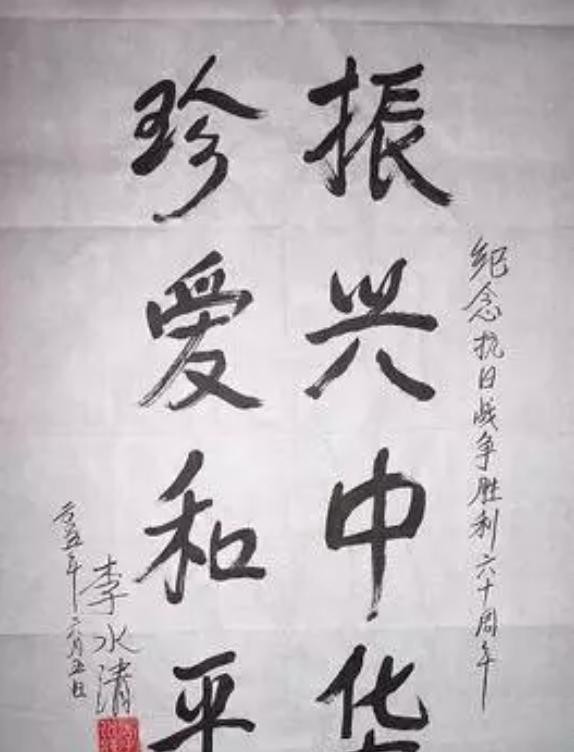 纪念抗日战争胜利六十周年
振兴中华
珍爱和平
李水清
二〇〇五年六月五日